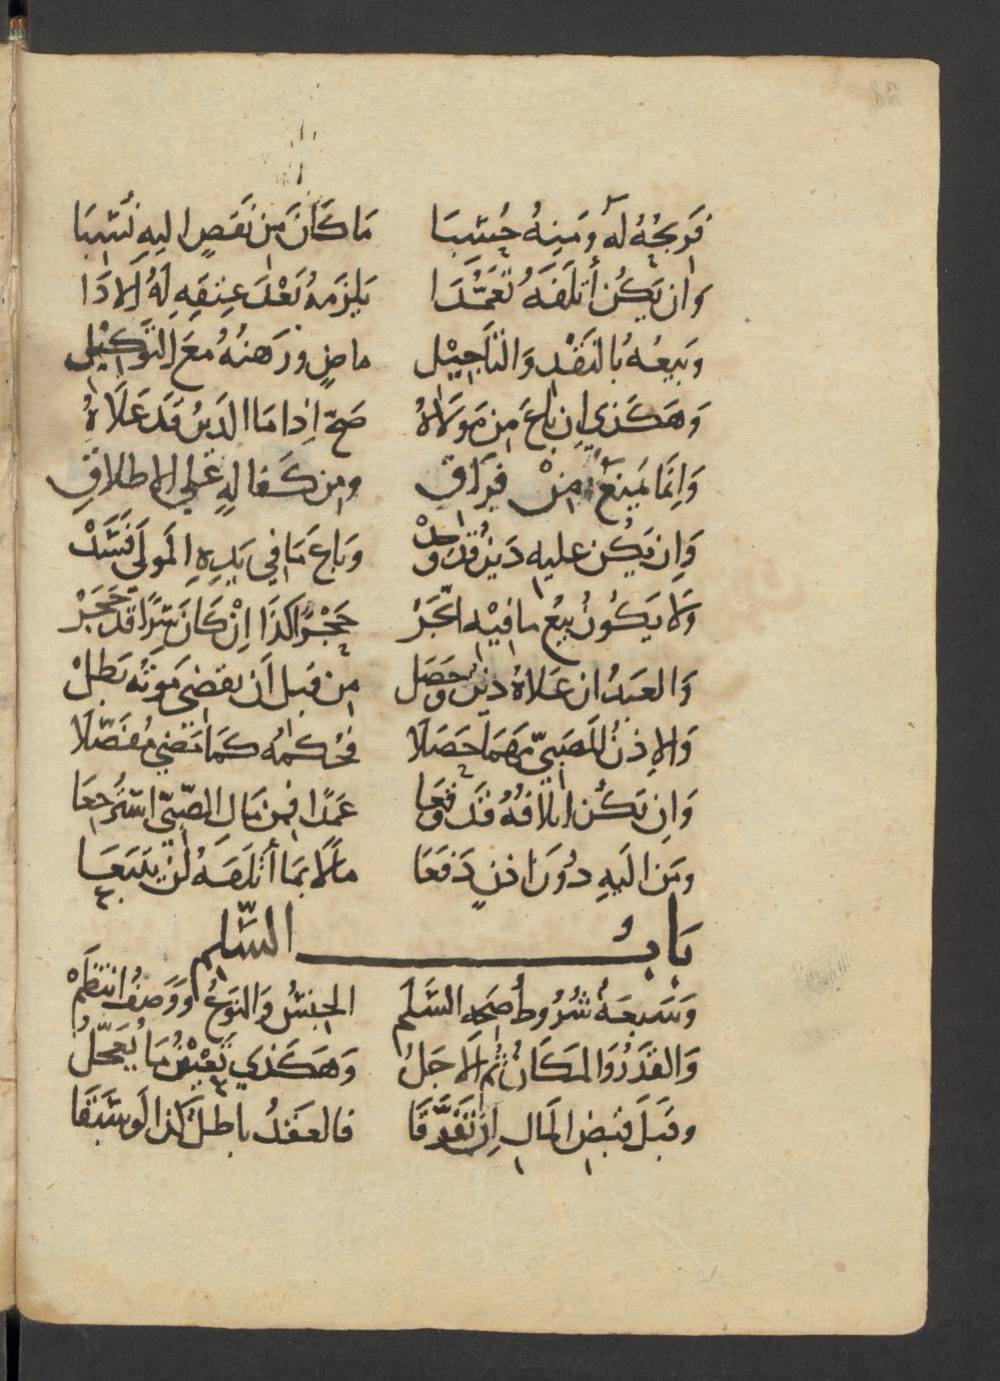 فَرِبْحُهُ لَهُ وَمِنهُ حُسِبَا مَا كَانَ مِن نَقصٍ اليهِ نُسِبَا
وان يَكُن أتلَفَهُ تَعَمُّدَا يَلزَمهُ بَعْدَ عِتقِهِ لَهُ الادَا
وبَيعُه بالنَقْدِ وَالتاجِيْلِ ماضٍ ورَهنُهُ مَعَ التَوكِيْلِ
وَهَكَذي اِن بَاعَ مِن مَولَاهُ صَحّ اِذا مَا الدَينُ قَد عَلَاهُ
وَاِنَّما يُمنَعُ مِنْ فِرَاقِ ومِن كَفَالهٍ عَلي الاطلاقِ
وَاِن يَكُن عليهِ دَينٌ قَد وُجِدْ وَبَاعَ مَا في يَدِهِ المَولَى فَسَدْ
وَلا يَكُونُ بَيعُ ما فيْهِ اتّجَرْ حَجْرًا كَذَا اِنْ كَانَ سِرًّا قَد حَجَرْ
وَالعَبدُ ان عَلاهُ دَينٌ وحَصَل مِن قَبلِ أن يَقضِيَ مَوتُه بَطَلْ
وَالاِذنُ للصَبيّ مَهمَا حَصَلَا فحُكمُه كَمَا مَضَي مُفَصّلَا
وَاِن يَكُن اِتلافُهُ قَد وقَعَا عَمدًا فَمِن مَالِ الصّبيّ استُرجِعَا
ومَن اليهِ دُونَ اذنٍ دَفَعَا مالًا بمَا أتلَفَهُ لَن يُتبَعَا
بَابُ السَّلم
وَسَبعَةٌ شُرُوط صِحه السَّلَم الجِنسُ وَالنَوعُ وَوَصفٌ انتظَمْ
وَالقَدرُ وَالمَكَانُ ثُم الاجَلُ وَهَكَذي تَعيْينُ مَا يُعَجّلُ
وقَبلَ قبضِ المَالِ اِن تَفَرَّقَا فالعَقدُ باطلٌ كذا لَو سَبَقَا